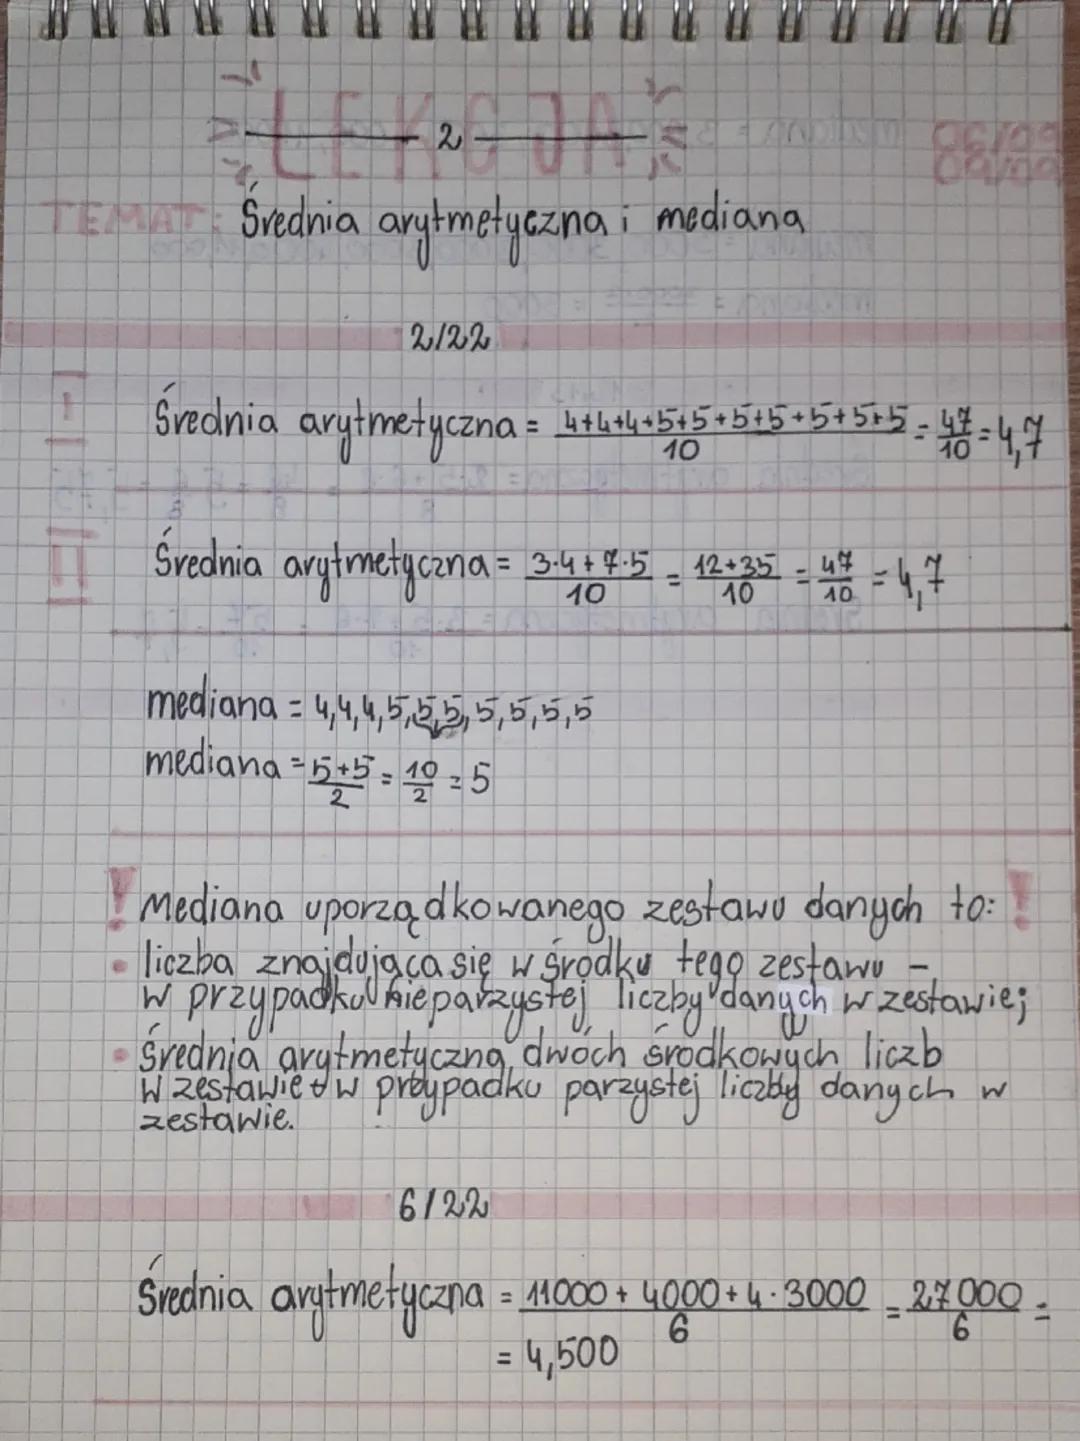 LEKCJA
2
TEMAT: Średnia arytmetyczna i mediana
2/22
I
Średnia arytmetyczna = 4+4+4+5+5+5+5+5+5+5/10 = 47/10 = 4,7
II
Średnia arytmetyczna = 3·4+7·5/10 = 12+35/10 = 47/10 = 4,7
mediana = 4,4,4,5,5,5,5,5,5,5
mediana = 5+5/2 = 10/2 = 5
! Mediana uporządkowanego zestawu danych to: !
• liczba znajdująca się w środku tego zestawu –
w przypadku nieparzystej liczby danych w zestawie;
• średnia arytmetyczna dwóch środkowych liczb
w zestawie w przypadku parzystej liczby danych w
zestawie.
6/22
Średnia arytmetyczna = 11000 + 4000 + 4·3000/6 = 27000/6 =
= 4,500